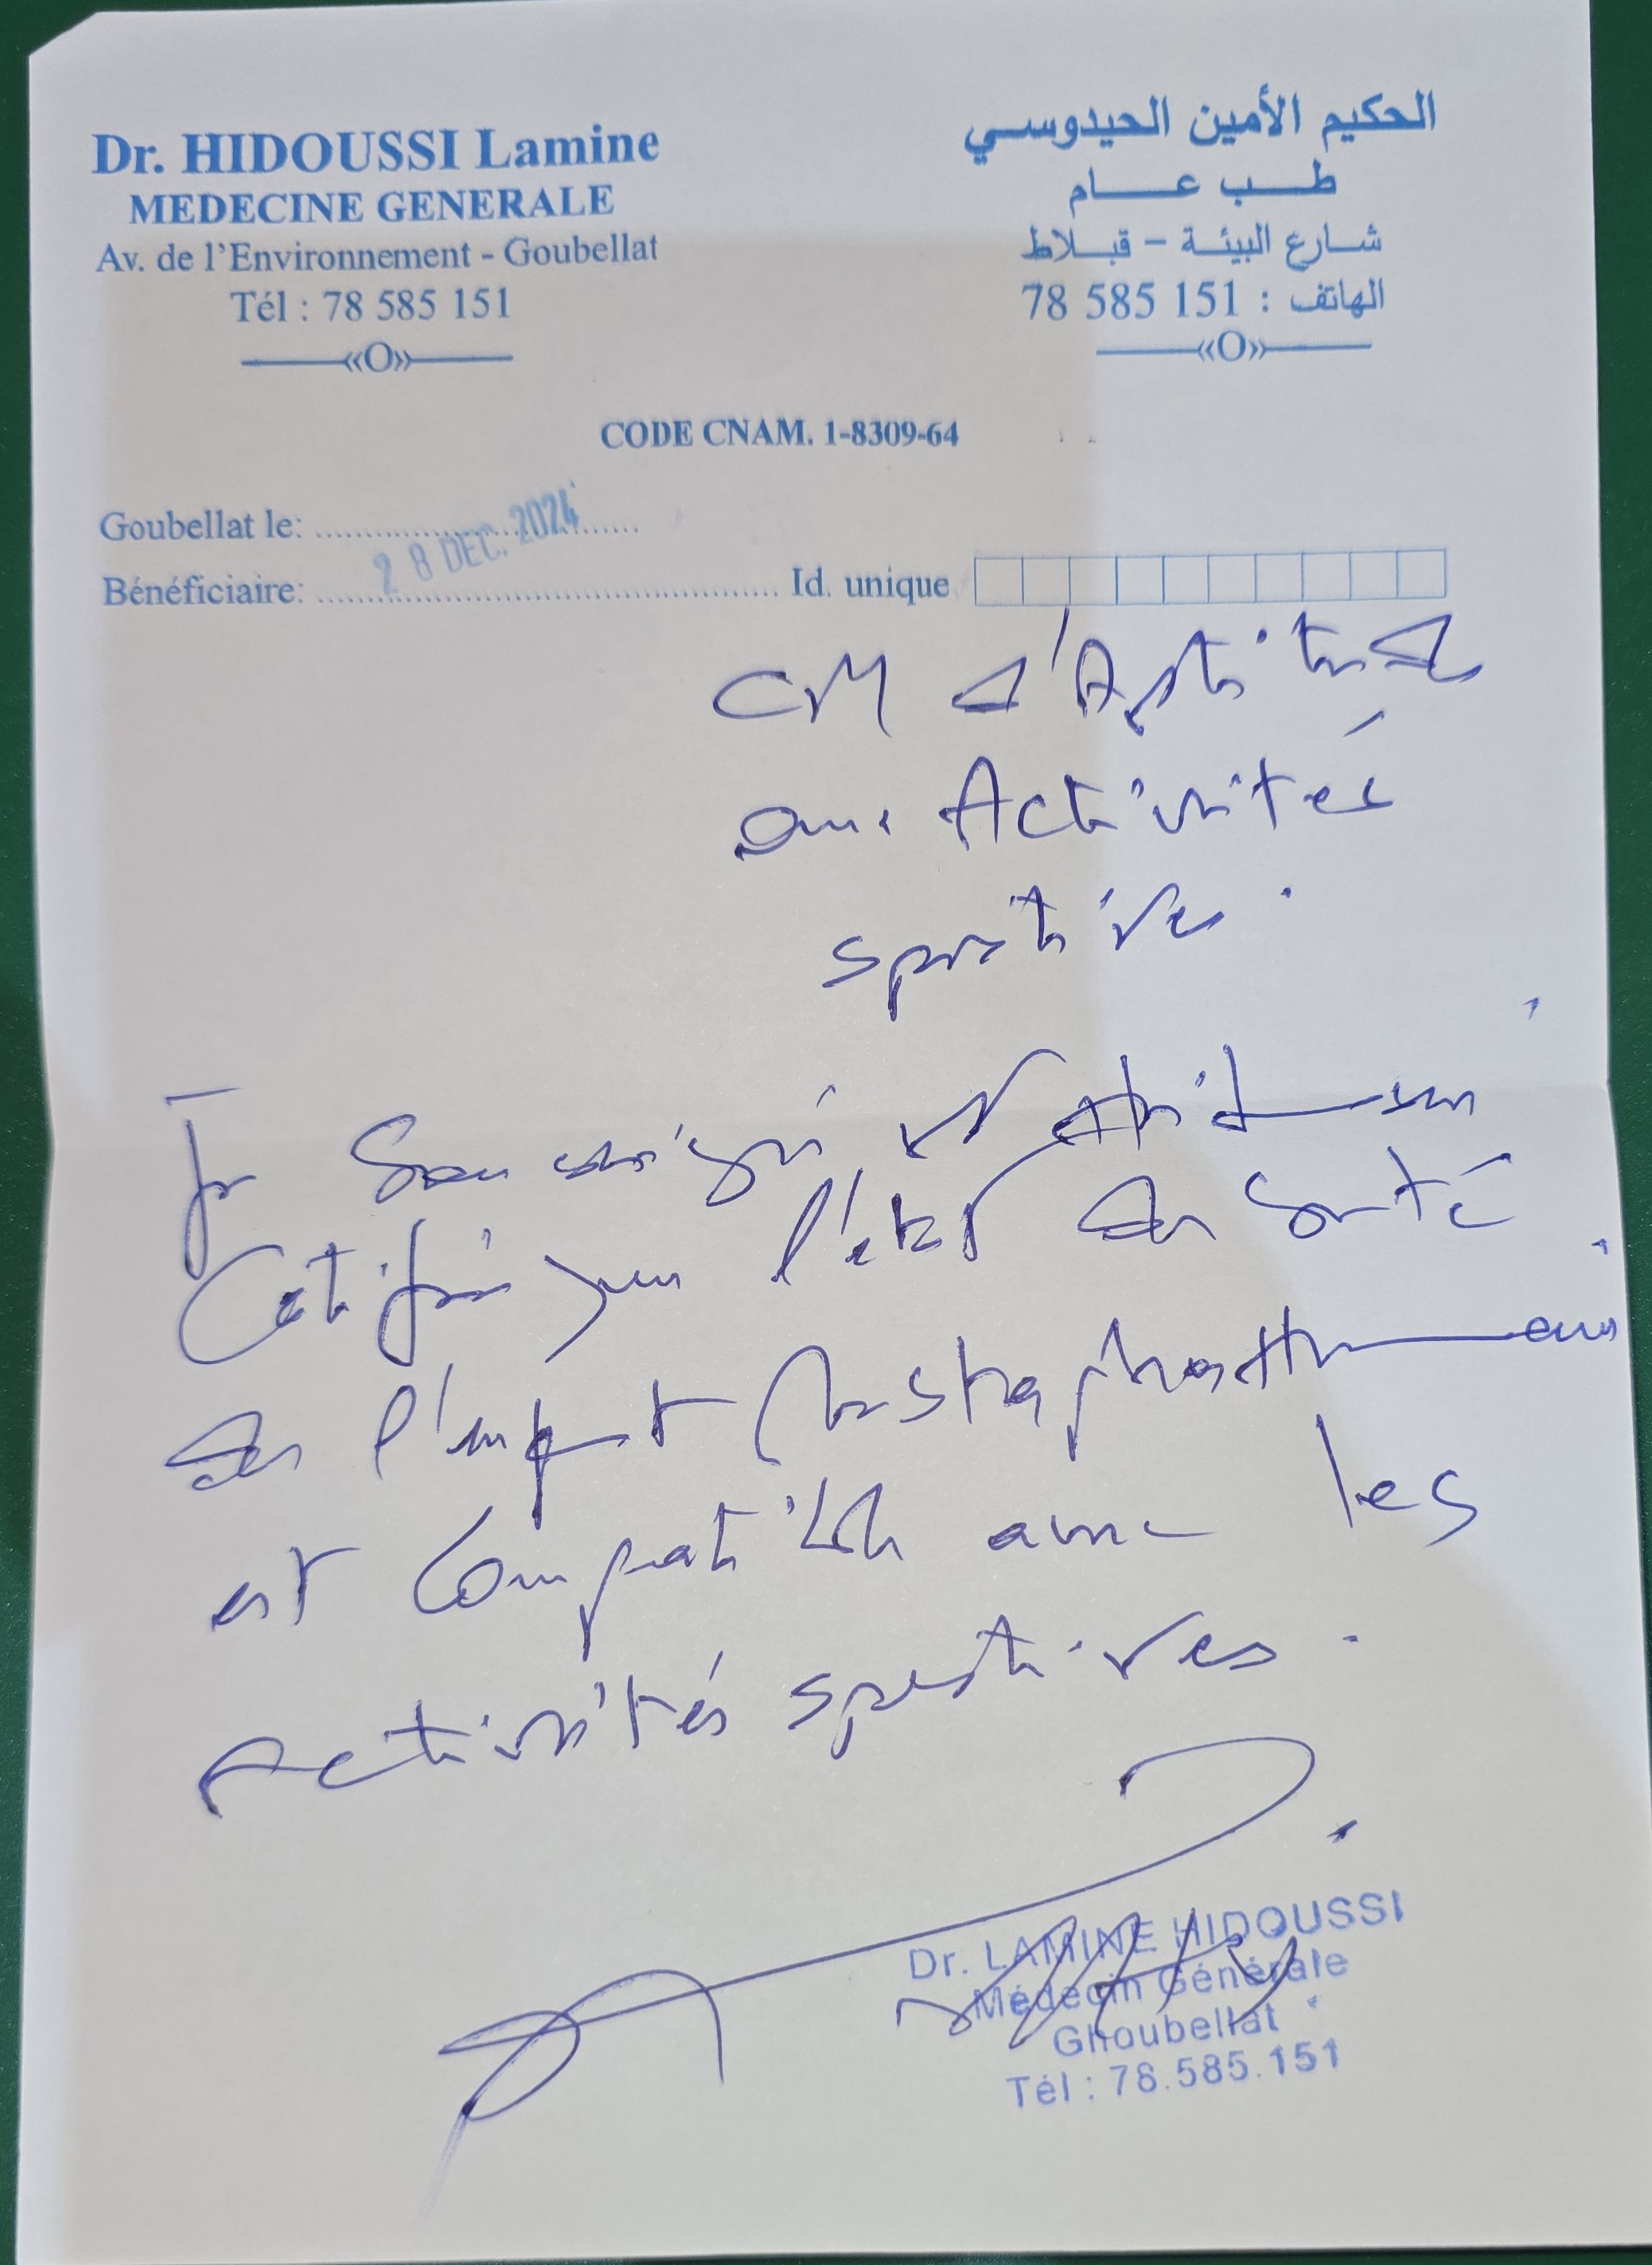 Dr. HIDOUSSI Lamine
MEDECINE GENERALE
Av. de l'Environnement - Goubellat
Tél : 78 585 151
«O»
الحكيم الأمين الحيدوسي
طب عام
شارع البيئة - قبلاط
الهاتف : 151 585 78
«O»
CODE CNAM. 1-8309-64
Goubellat le:
28 DEC. 2024
Bénéficiaire: Id. unique
CM d'Aptitude
aux Activités
sportives.
Je soussigné
Certifie que l'état de santé
de l'enfant
est compatible avec les
activités sportives.
Dr. LAMINE HIDOUSSI
Médecin Générale
Ghoubellat
Tél : 78.585.151